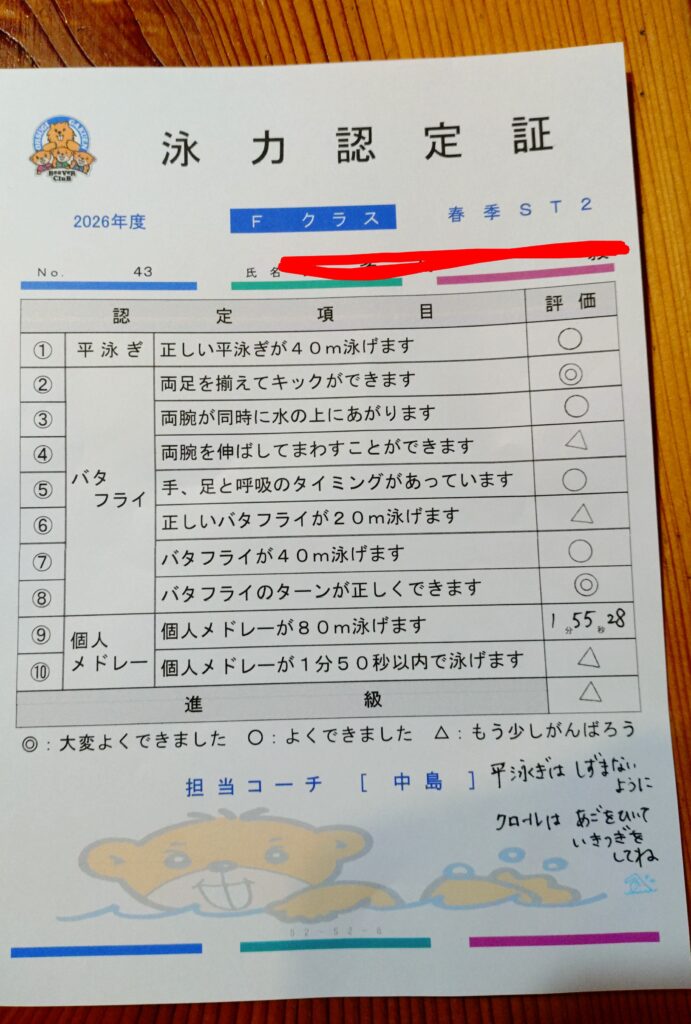 BEAVER CLUB
泳力認定証
2026年度
Fクラス
春季ST2
No. 43
氏名
認定項目 評価
① 平泳ぎ 正しい平泳ぎが40m泳げます ○
② バタフライ 両足を揃えてキックができます ◎
③ 両腕が同時に水の上にあがります ○
④ 両腕を伸ばしてまわすことができます △
⑤ 手、足と呼吸のタイミングがあっています ○
⑥ 正しいバタフライが20m泳げます △
⑦ バタフライが40m泳げます ○
⑧ バタフライのターンが正しくできます ◎
⑨ 個人メドレー 個人メドレーが80m泳げます 1分55秒28
⑩ 個人メドレーが1分50秒以内で泳げます △
進級 △
◎:大変よくできました ○:よくできました △:もう少しがんばろう
担当コーチ [ 中島 ]
平泳ぎは しずまない
ように
クロールは あごをひいて
いきつぎを
してね
52-52-6